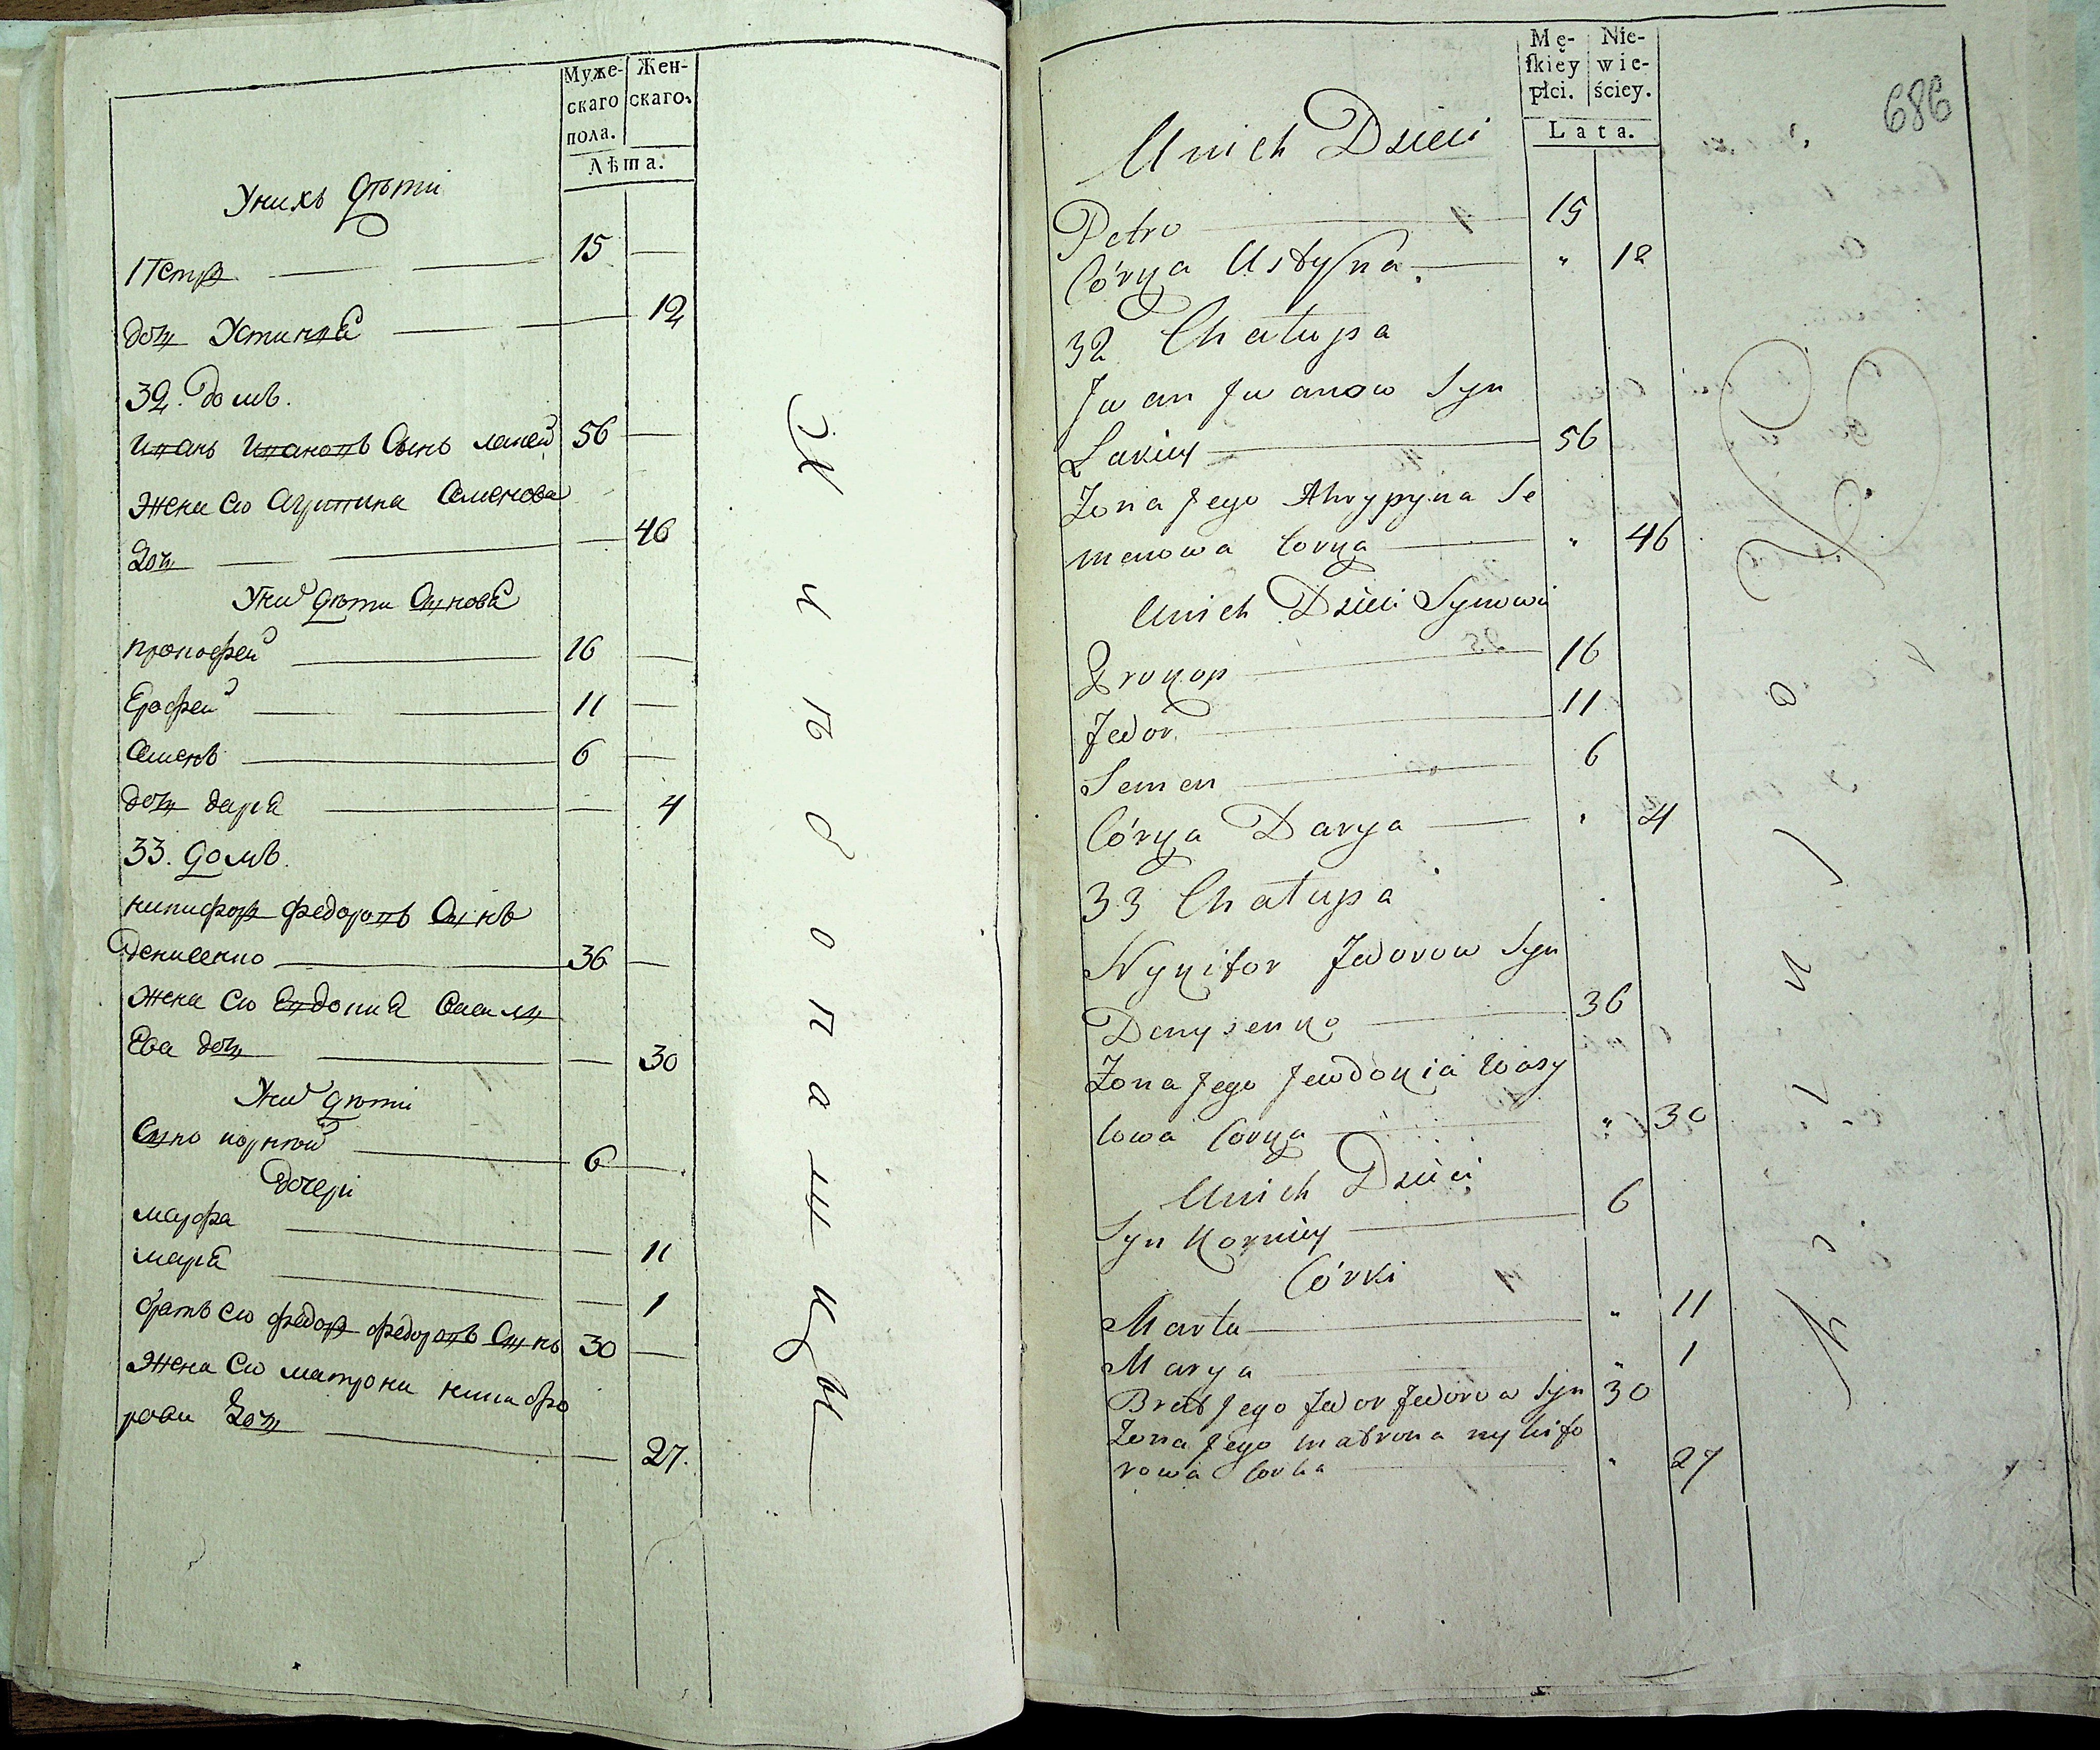 Муже-
скаго
пола.
Жен-
скаго.
Лѣта.
У нихъ Дѣти
Петръ 15
дочь Устиния 12
32. домъ.
Иванъ Ивановъ Сынъ Лакей 56
Жена Его Агрипина Семенова
Дочь 46
У них дѣти Сынове
Прокофей 16
Ерофей 11
Семенъ 6
дочь Дарія 4
33. Домъ.
Никифоръ Федоровъ Сынъ
Денисенко 36
Жена Его Евдокия Васил
Ева дочь 30
У них Дѣти
Сынъ Корней 6
Дочери
Марфа 11
Мария 1
братъ Его Федоръ Федоровъ Сынъ 30
Жена Его Матрона Никифо
рова Дочь 27.
Mę-
skiey
płci.
Nie-
wie-
ściey.
Lata.
686
Unich Dzieci
Petro 15
Córka Ustyna. " 12
32 Chałupa
Iwan Iwanow Syn
Łakiey 56
Żona Jego Ahrypyna Se
menowa Corka " 46
Unich Dzieci Synowie
Prokop 16
Fedor 11
Semen 6
Córka Darya " 4
33 Chałupa
Nykifor Fedorow Syn
Denysenko 36
Żona Jego Jewdokia Wasy
lowa Corka " 30
Unich Dzieci
Syn Korniey 6
Córki
Marta " 11
Marya " 1
Brat Jego Fedor Fedorow Syn 30
Żona Jego Matrona nykifo
rowa Corka " 27